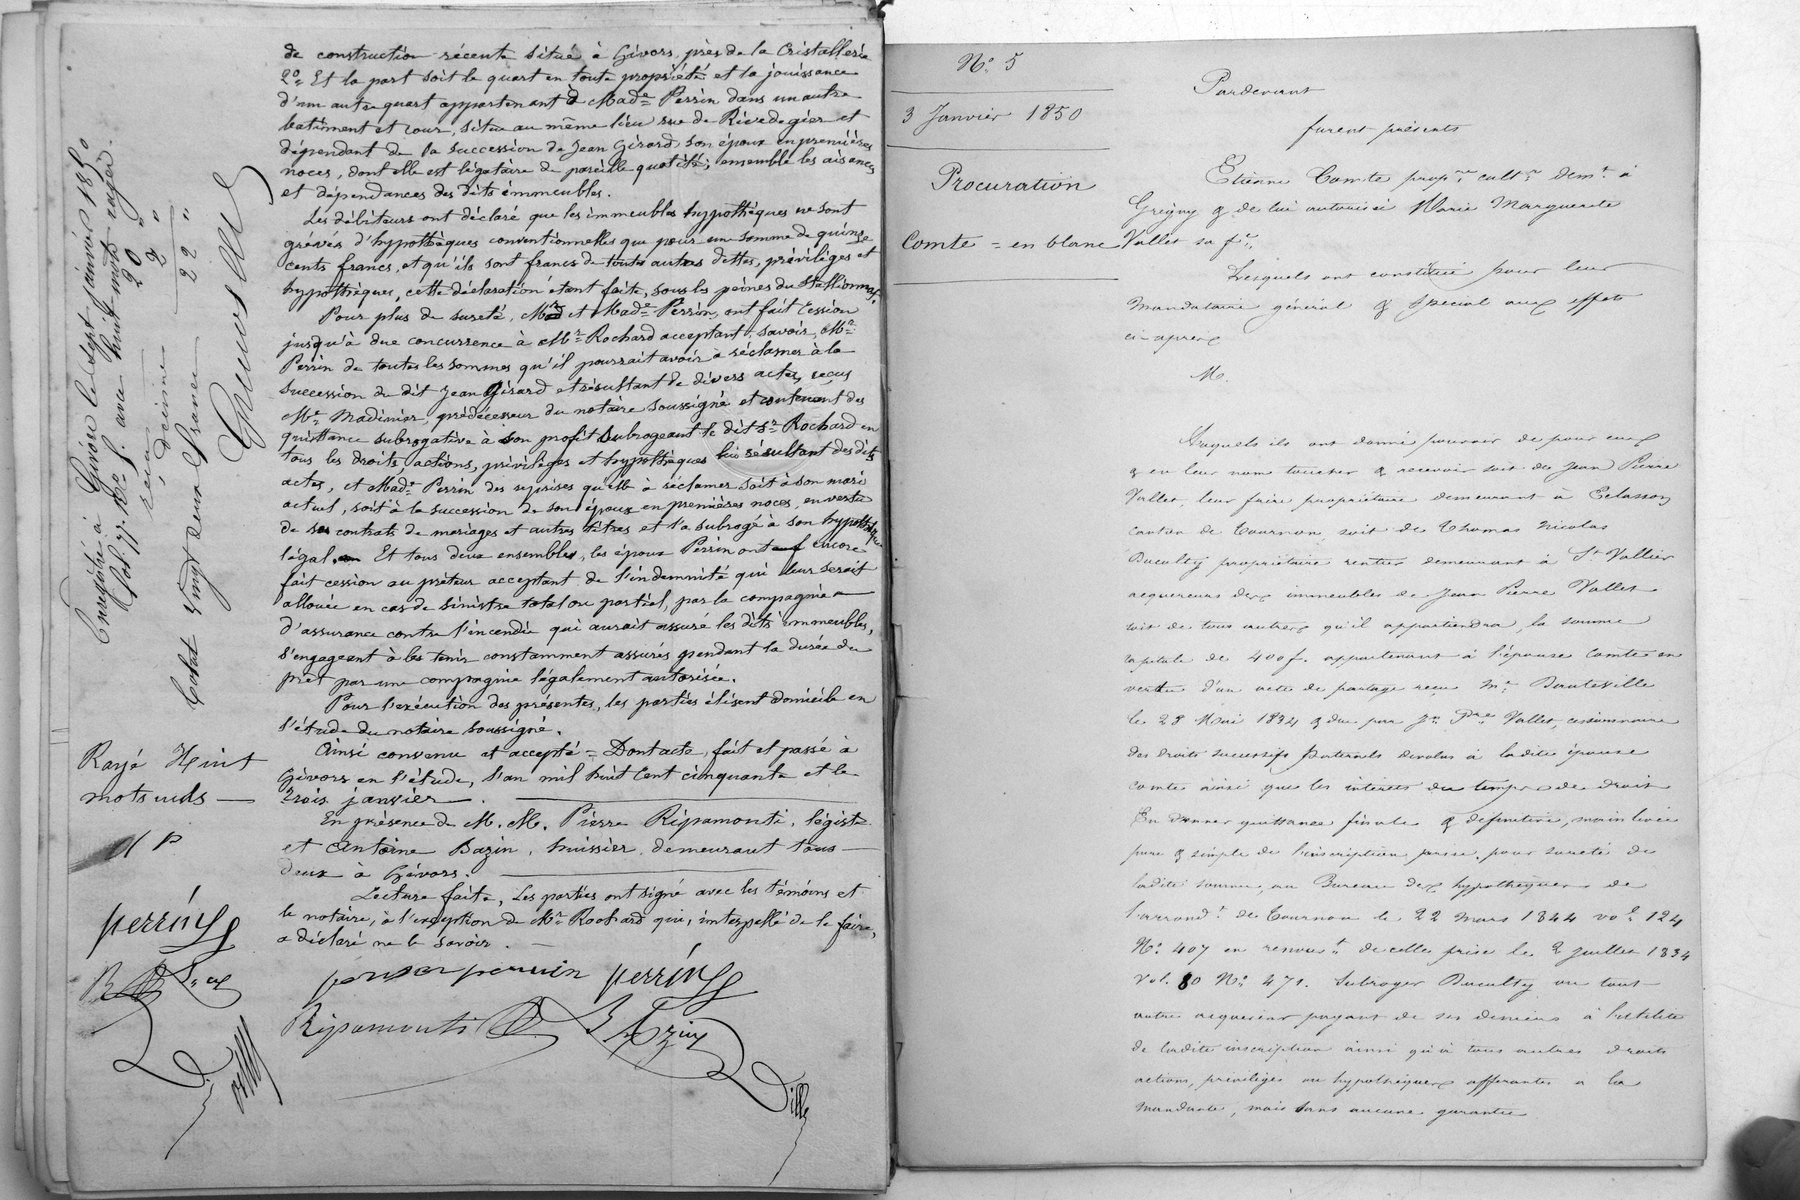 de construction récente situé à Givors, près de la Cristallerie
2°= Et la part soit le quart en toute propriété et la jouissance
d'un autre quart appartenant à Made Perrin dans un autre
batiment et cour, situé au même lieu rue de Rive de gier et
dépendant de la succession de Jean Girard, son époux en premières
noces, dont elle est légataire de pareille quotité; ensemble les aisances
et dépendances des dits immeubles.
Les débiteurs ont déclaré que les immeubles hypothéqués ne sont
grévés d'hypothèques conventionnelles que pour une somme de quinze
cents francs, et qu'ils sont francs de toutes autres dettes, priviléges et
hypothèques, cette déclaration étant faite, sous les peines du Stellionnat.
Pour plus de sureté, Mr et Made Perrin, ont fait Cession
jusqu'à due concurrence à Mr Rochard acceptant, savoir, Mr
Perrin de toutes les sommes qu'il pourrait avoir à réclamer à la
succession du dit Jean Girard et résultant de divers actes, reçus
Me Madinier, prédécesseur du notaire soussigné et contenant des
quittance subrogative à son profit Subrogeant le dit Sr Rochard en
tous les droits, actions, priviléges et hypothèques lui résultant des dits
actes, et Made Perrin des reprises qu'elle à réclamer soit à son mari
actuel, soit à la succession de son époux en premières noces, en vertu
de ses contrats de mariages et autres titres et l'a subrogé à son hypothèque
légal. Et tous deux ensemble, les époux Perrin ont encore
fait cession au préteur acceptant de l'indemnité qui leur serait
allouée en cas de sinistre total ou partiel, par la compagnie
d'assurance contre l'incendie qui aurait assuré les dits immeubles,
s'engageant à les tenir constamment assurés pendant la durée du
prêt par une compagnie légalement autorisée.
Pour l'exécution des présentes, les parties élisent domicile en
l'étude du notaire soussigné.
Ainsi convenu et accepté = Dont acte, fait et passé à
Givors en l'étude, l'an mil huit Cent cinquante et le
Trois janvier.
En présence de M. M. Pierre Ripamonti, légiste
et Antoine Bazin, huissier, demeurant tous
deux à Givors.
Lecture faite, Les parties ont signé avec les témoins et
le notaire, à l'exception de Mr Rochard qui, interpellé de le faire,
a déclaré ne le savoir.
perrin
Ripamonti
Bazin
Enregistré à Givors le sept janvier 1850
fol. 77. Ro c 5. avec huit mots rayés.
reçu 20 "
décime 2 "
22 "
Total Vingt deux francs
Rayé Huit
mots nuls
perrin
No 5
3 Janvier 1850
Procuration
Comte = en blanc
Pardevant
furent présents
Etienne Comte propre cultr demt à
Grigny & de lui autorisée Marie Marguerite
Vallet sa fe
Lesquels ont constitué pour leur
mandataire général & spécial aux effets
ci-après
M.
Auquels ils ont donné pouvoir de pour eux
& en leur nom toucher & recevoir soit de Jean Pierre
Vallet, leur frère propriétaire demeurant à Eclassan
canton de Tournon, soit de Thomas Nicolas
propriétaire rentier demeurant à St Vallier
acquereurs des immeubles de Jean Pierre Vallet
soit de tous autres qu'il appartiendra, la somme
capitale de 400 f. appartenant à l'épouse Comte en
vertu d'un acte de partage reçu Me Dauteville
le 28 Mai 1834 & due par Jn Pre Vallet, cessionnaire
des droits successifs paternels dévolus à ladite épouse
comte ainsi que les intérets du temps de droit
En donner quittance finale & définitive, main levée
pure & simple de l'inscription prise, pour sureté de
ladite somme, au Bureau des hypothèques de
l'arrondt de Tournon le 22 mars 1844 vol 124
No 407 en renouvt de celle prise le 2 Juillet 1834
Vol. 80 No 471. Subroger ou tout
autre acquereur payant de ses deniers à l'utilité
de ladite inscription ainsi qu'à tous autres droits
actions, priviléges ou hypothèques afférantes à la
mandante, mais sans aucune garantie